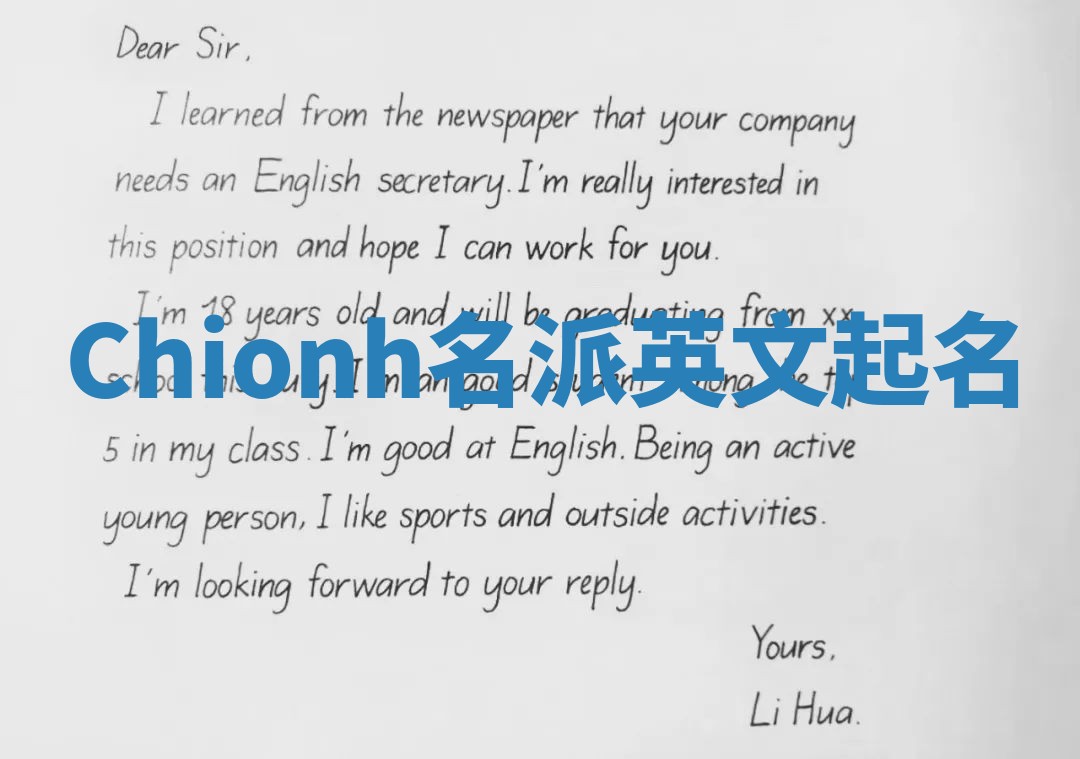 Dear Sir,
I learned from the newspaper that your company
needs an English secretary. I'm really interested in
this position and hope I can work for you.
I'm 18 years old and will be graduating from xx
Chionh名派英文起名
school this July. I'm an good student among the top
5 in my class. I'm good at English. Being an active
young person, I like sports and outside activities.
I'm looking forward to your reply.
Yours,
Li Hua.